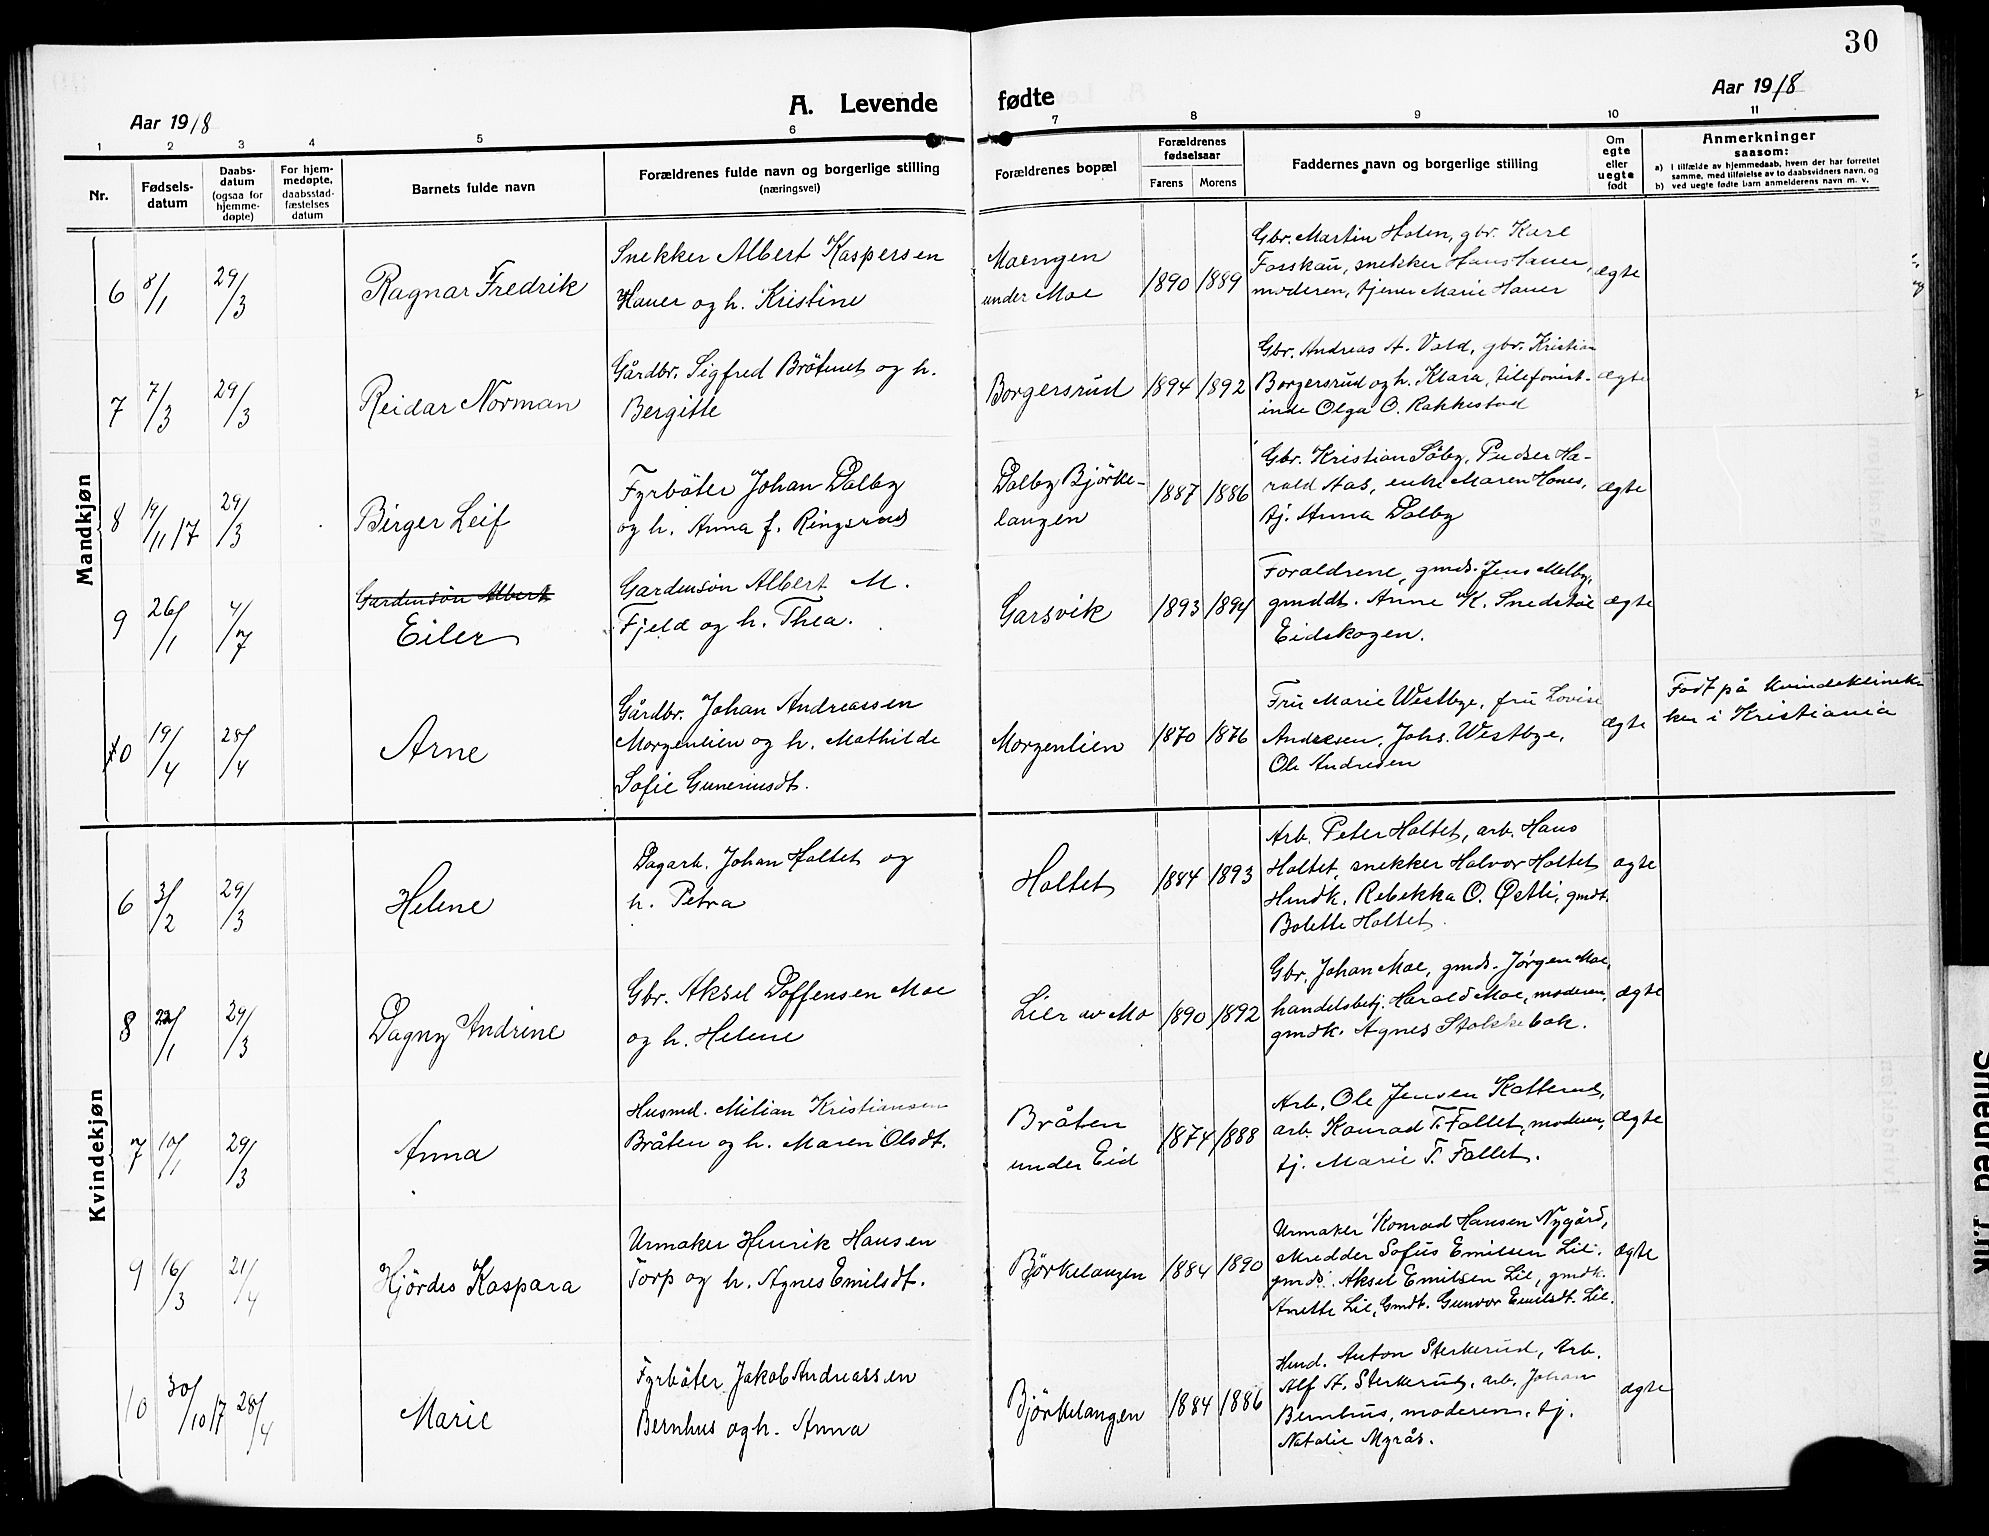 30
A. Levende fødte
Aar 1918
Aar 1918
1 2 3 4 5 6 7 8 9 10 11
Nr.
Fødsels-
datum
Daabs-
datum
(ogsaa for
hjemme-
døpte)
For hjem-
medøpte,
daabsstad-
fæstelses
datum
Barnets fulde navn
Forældrenes fulde navn og borgerlige stilling
(næringsvei)
Forældrenes bopæl
Forældrenes
fødselsaar
Farens Morens
Faddernes navn og borgerlige stilling
Om
egte
eller
uegte
født
Anmerkninger
saasom:
a) I tilfælde av hjemmedaab, hvem der har forrettet
samme, med tilføielse av to daabsvidners navn, og
b) ved uegte fødte barn anmelderens navn m. v.
Mandkjøn
6 8/1 29/3 Ragnar Fredrik
Snekker Albert Kaspersen
Hauer og h. Kristine
Moengen
under Moe
1890 1889
Gbr. Martin Holen, gbr. Kare
Fosskau, snekker Hans Hauer,
moderen, tjener Marie Hauer
ægte
7 7/3 29/3 Reidar Norman
Gårdbr. Sigfred Bråtenet og h.
Bergitte
Borgersrud
1894 1892
Gbr. Andreas A. Vold, gbr. Kristian
Borgersrud og h. Klara, telefonist-
inde Olga O. Rakkestad
ægte
8 19/11 17 29/3 Birger Leif
Fyrbøter Johan Dalby
og h. Anna f. Ringsrud
Dalby Bjørke-
langen
1887 1886
Gbr. Kristian Søby, Pudser Ha-
rald Aas, enke Maren Hanes,
tj. Anna Dalby
ægte
9 26/1 4/7 Gardensøn Albert
Eiler
Gardensøn Albert M.
Fjeld og h. Thea.
Garsvik
1893 1894
Foraldrene, gmds. Jens Melby,
gmddt. Anne K. Snedstøe
Eidskogen.
ægte
10 19/4 28/4 Arne
Gårdbr. Johan Andreassen
Morgenlien og h. Mathilde
Sofie Guneriusdt.
Morgenlien
1870 1876
Fru Marie Westbye, fru Lovise
Andresen, Johs. Westbye,
Ole Andresen
ægte
Født på kvindeklinek-
ken i Kristiania
Kvindekjøn
6 3/2 29/3 Helene
Dagarb. Johan Holtet og
h. Petra
Holtet
1884 1893
Arb. Peter Holtet, arb. Hans
Holtet, snekker Halvor Holtet
Hmdk. Rebekka O. Østli, gmdt.
Bolette Holtet.
ægte
8 22/1 29/3 Dagny Andrine
Gbr. Aksel Doffensen Moe
og h. Helene
Lier av Mo
1890 1892
Gbr. Johan Moe, gmds. Jørgen Moe,
handelsbetj. Harald Moe, moderen,
gmdk. Agnes Stokkebak.
ægte
7 10/1 29/3 Anna
Husmd. Milian Kristiansen
Bråten og h. Maren Olsdt.
Bråten
under Eid
1874 1888
Arb. Ole Jensen Katterud,
arb. Konrad T. Fallet, moderen,
tj. Marie T. Fallet.
ægte
9 16/3 21/4 Hjördes Kaspara
Urmaker Henrik Hansen
Torp og h. Agnes Emilsdt.
Bjørkelangen
1884 1890
Urmaker Konrad Hansen Nygård,
skredder Sofus Emilsen Lie,
gmds. Aksel Emilsen Lie, gmdk.
Anette Lie, Gmdt. Gunvor Emilsdt. Lie.
ægte
10 30/10 17 28/4 Marie
Fyrbøter Jakob Andreassen
Bernhus og h. Anna
Bjørkelangen
1884 1886
Hmd. Anton Sterkerud, Arb.
Alf A. Sterkerud, arb. Johan
Bernhus, moderen, tj.
Natalie Myrås.
ægte